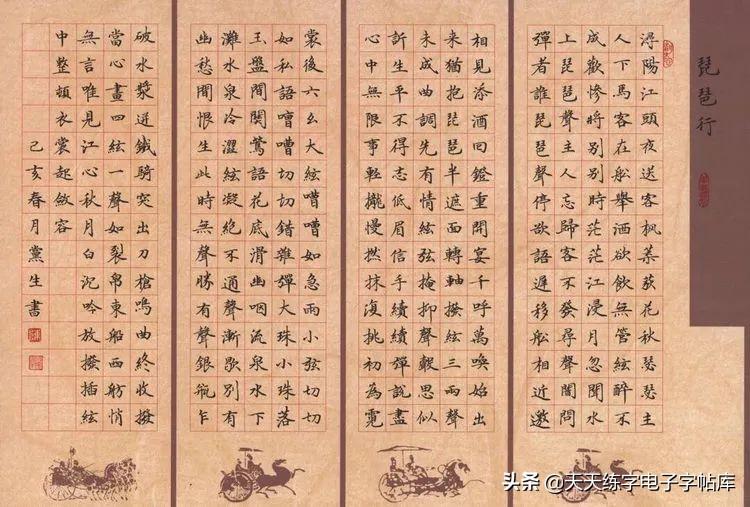 琵琶行
潯陽江頭夜送客楓葉荻花秋瑟瑟主
人下馬客在船舉酒欲飲無管絃醉不
成歡慘將別別時茫茫江浸月忽聞水
上琵琶聲主人忘歸客不發尋聲闇問
彈者誰琵琶聲停欲語遲移船相近邀
相見添酒回鐙重開宴千呼萬喚始出
来猶抱琵琶半遮面轉軸撥絃三兩聲
未成曲調先有情絃弦掩抑聲聲思似
訴生平不得志低眉信手續續彈說盡
心中無限事輕攏慢撚抹復挑初為霓
裳後六幺大絃嘈嘈如急雨小弦切切
如私語嘈嘈切切錯雜彈大珠小珠落
玉盤間關鶯語花底滑幽咽流泉水下
灘水泉冷澀絃凝絕不通聲漸歇別有
幽愁闇恨生此時無聲勝有聲銀瓶乍
破水漿迸鐵騎突出刀槍鳴曲終收撥
當心畫四絃一聲如裂帛東船西舫悄
無言唯見江心秋月白沉吟放撥插絃
中整頓衣裳起斂容
己亥春月黨生書
头条 @天天练字电子字帖库